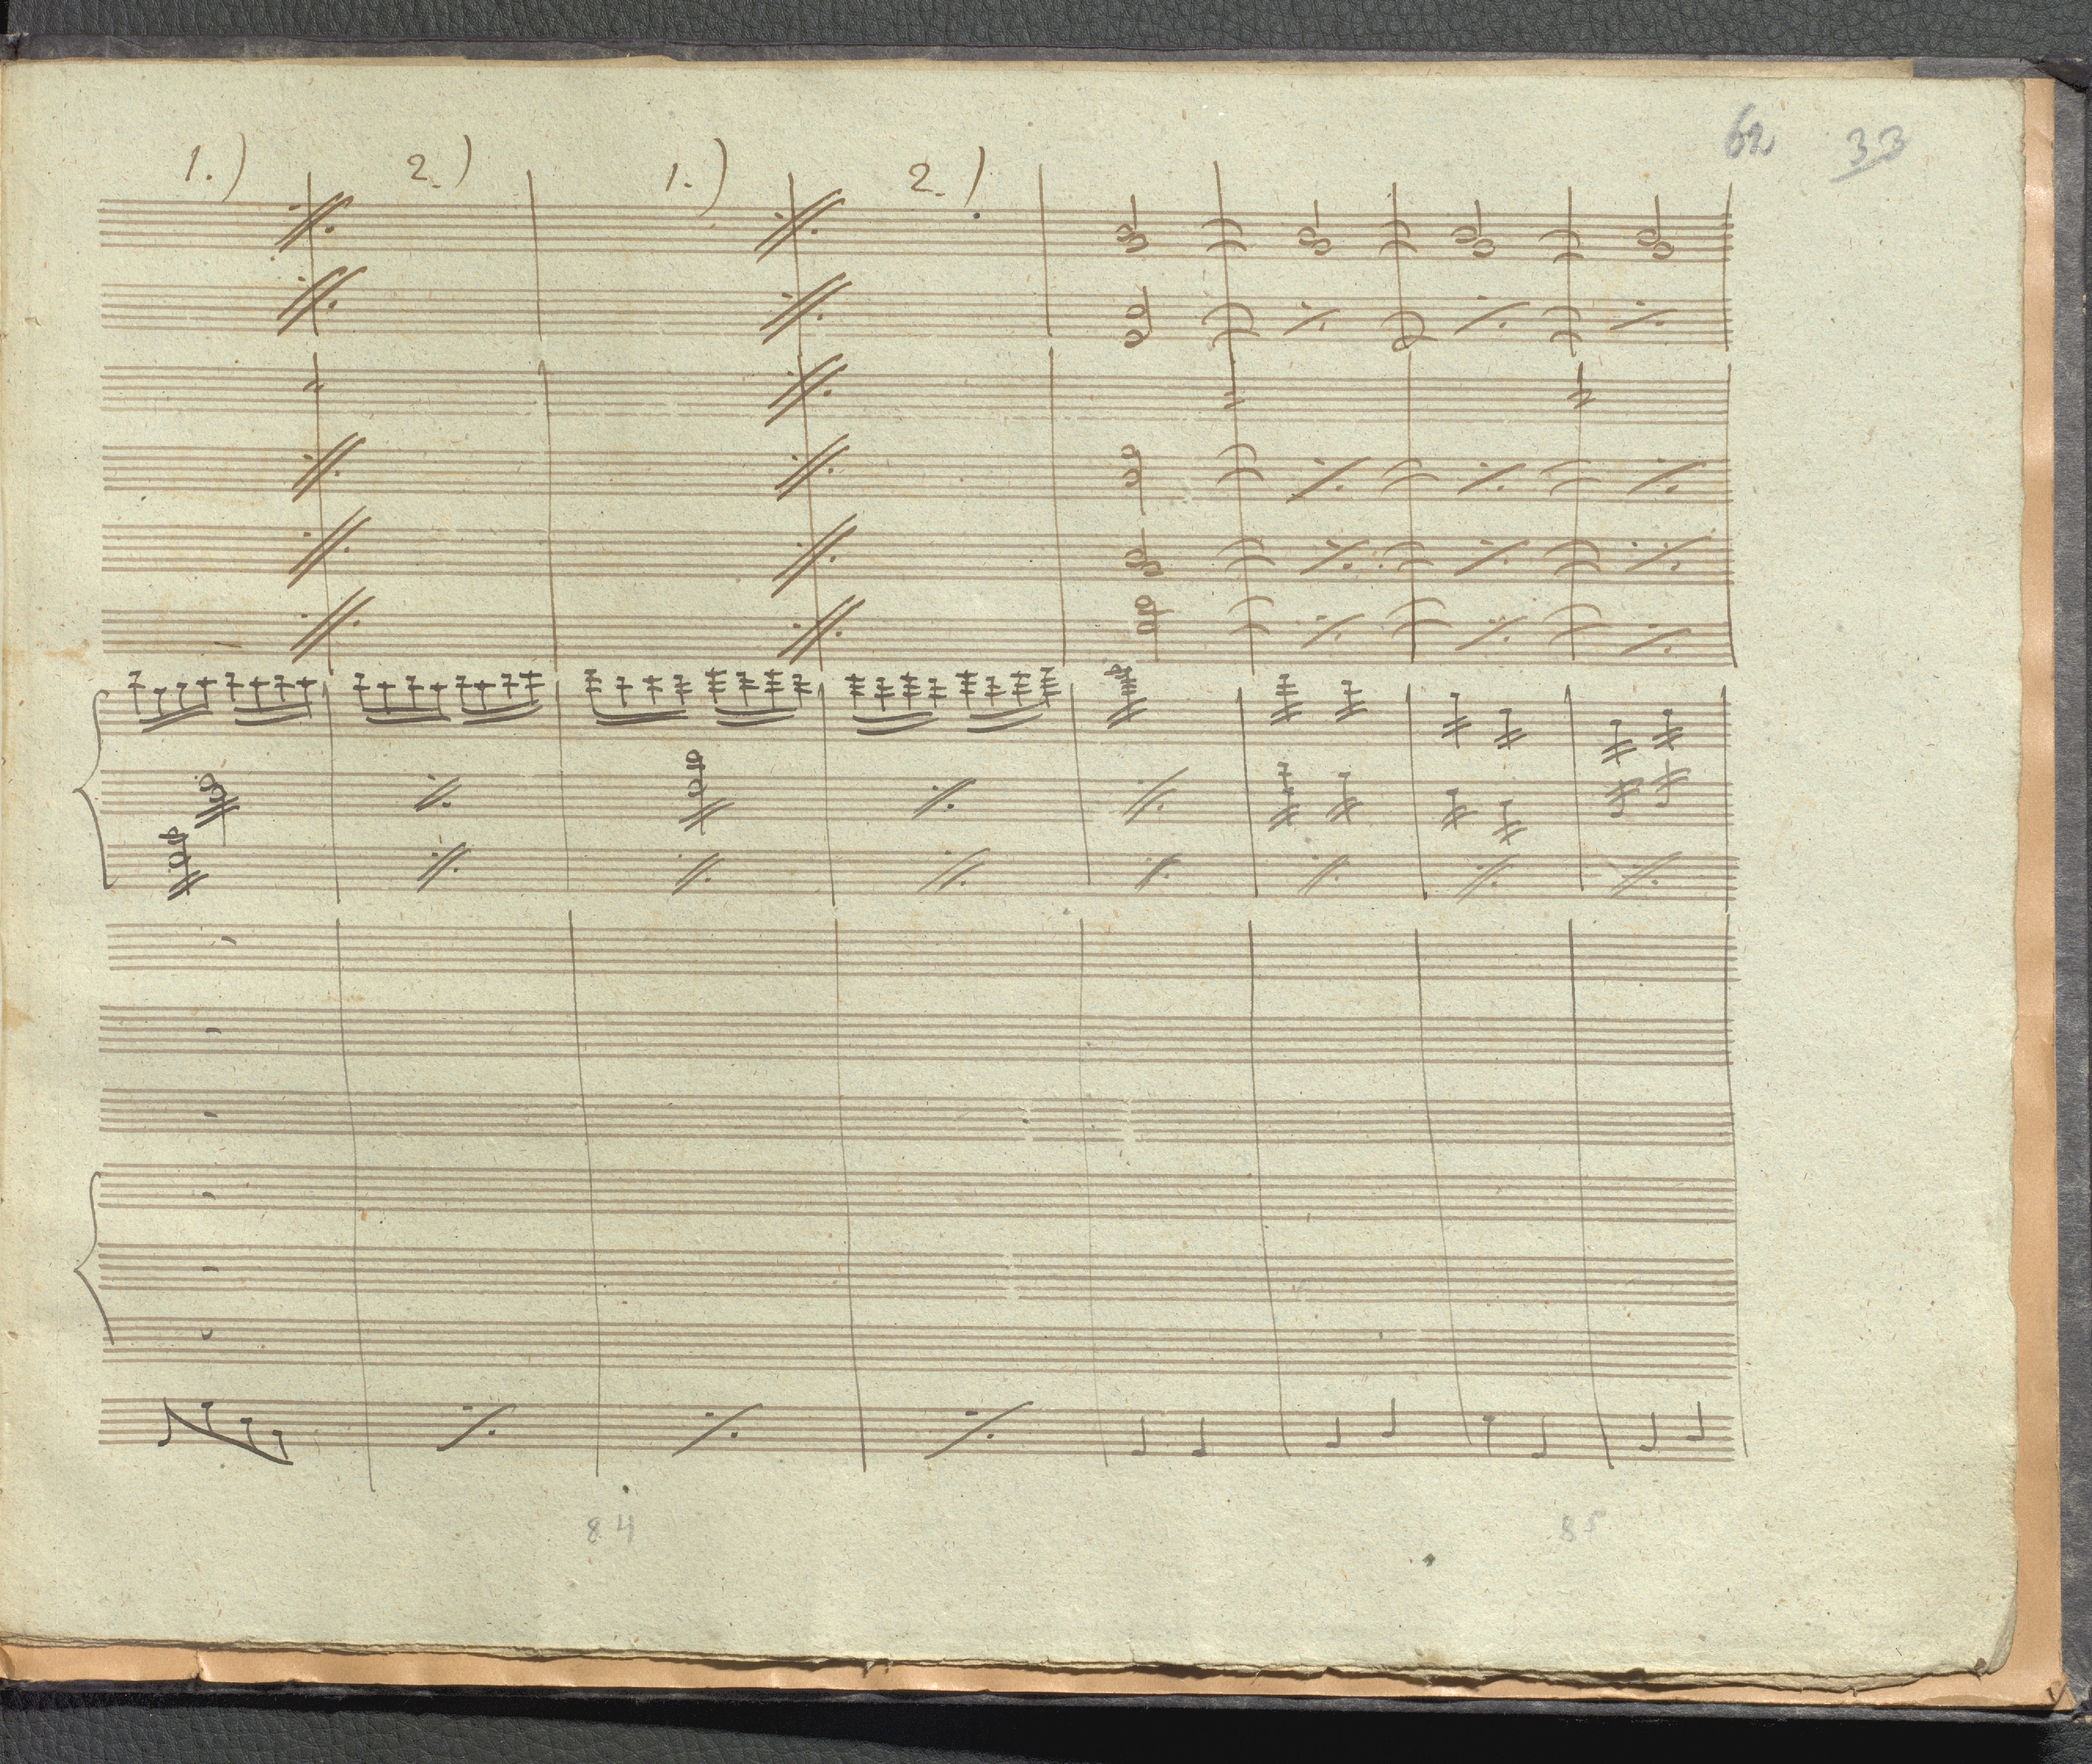 62 33
1.) 2.) 1.) 2.)
84 85